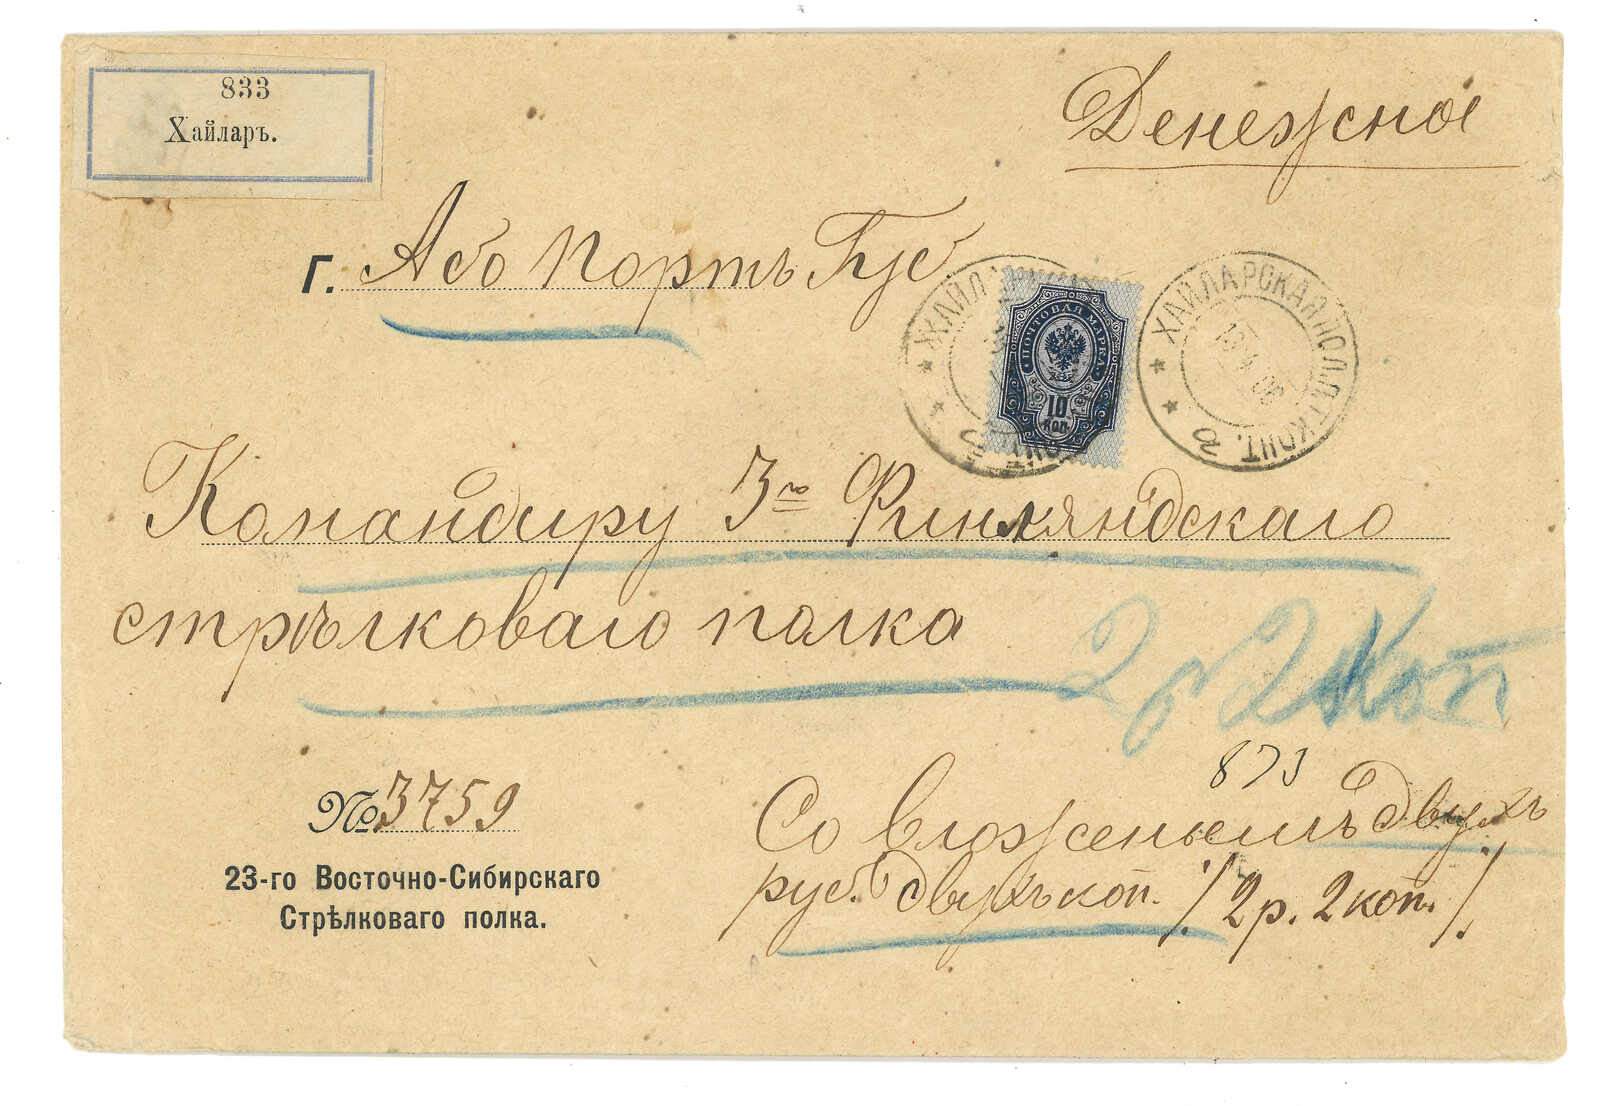 833
Хайларъ.
Денежное
г. Або Портъ Губ.
ХАЙЛАРСКАЯ ПОЛ. П. Т. КОНТ.
ПОЧТОВАЯ МАРКА
10
КОП.
Командиру 3го Финляндскаго
стрѣлковаго полка
2 р 2 коп
873
№ 3759
Со вложеньемъ двухъ
руб. двухъ коп. /2 р. 2 коп./
23-го Восточно-Сибирскаго
Стрѣлковаго полка.